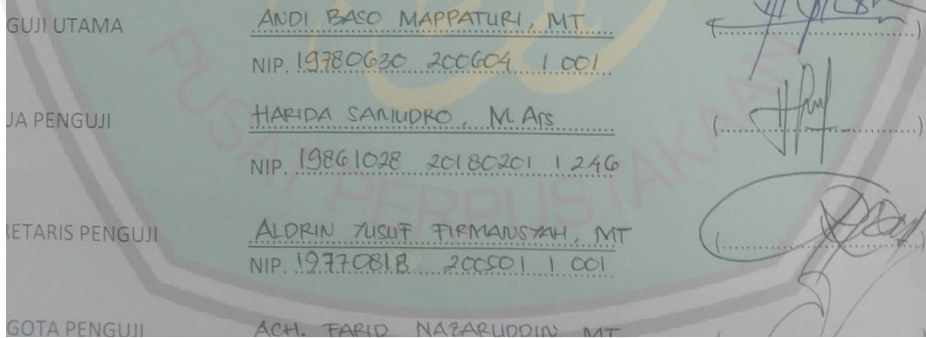 GUJI UTAMA ANDI BASO MAPPATURI, MT (....................)
NIP. 19780630 200604 1 001
UA PENGUJI HARIDA SAMUDRO, M. Ars (....................)
NIP. 19861028 20180201 1 246
RETARIS PENGUJI ALDRIN YUSUF FIRMANSYAH, MT (....................)
NIP. 19770818 200501 1 001
GOTA PENGUJI ACH. FARID NAZARUDDIN, MT
PUSAT PERPUSTAKAAN